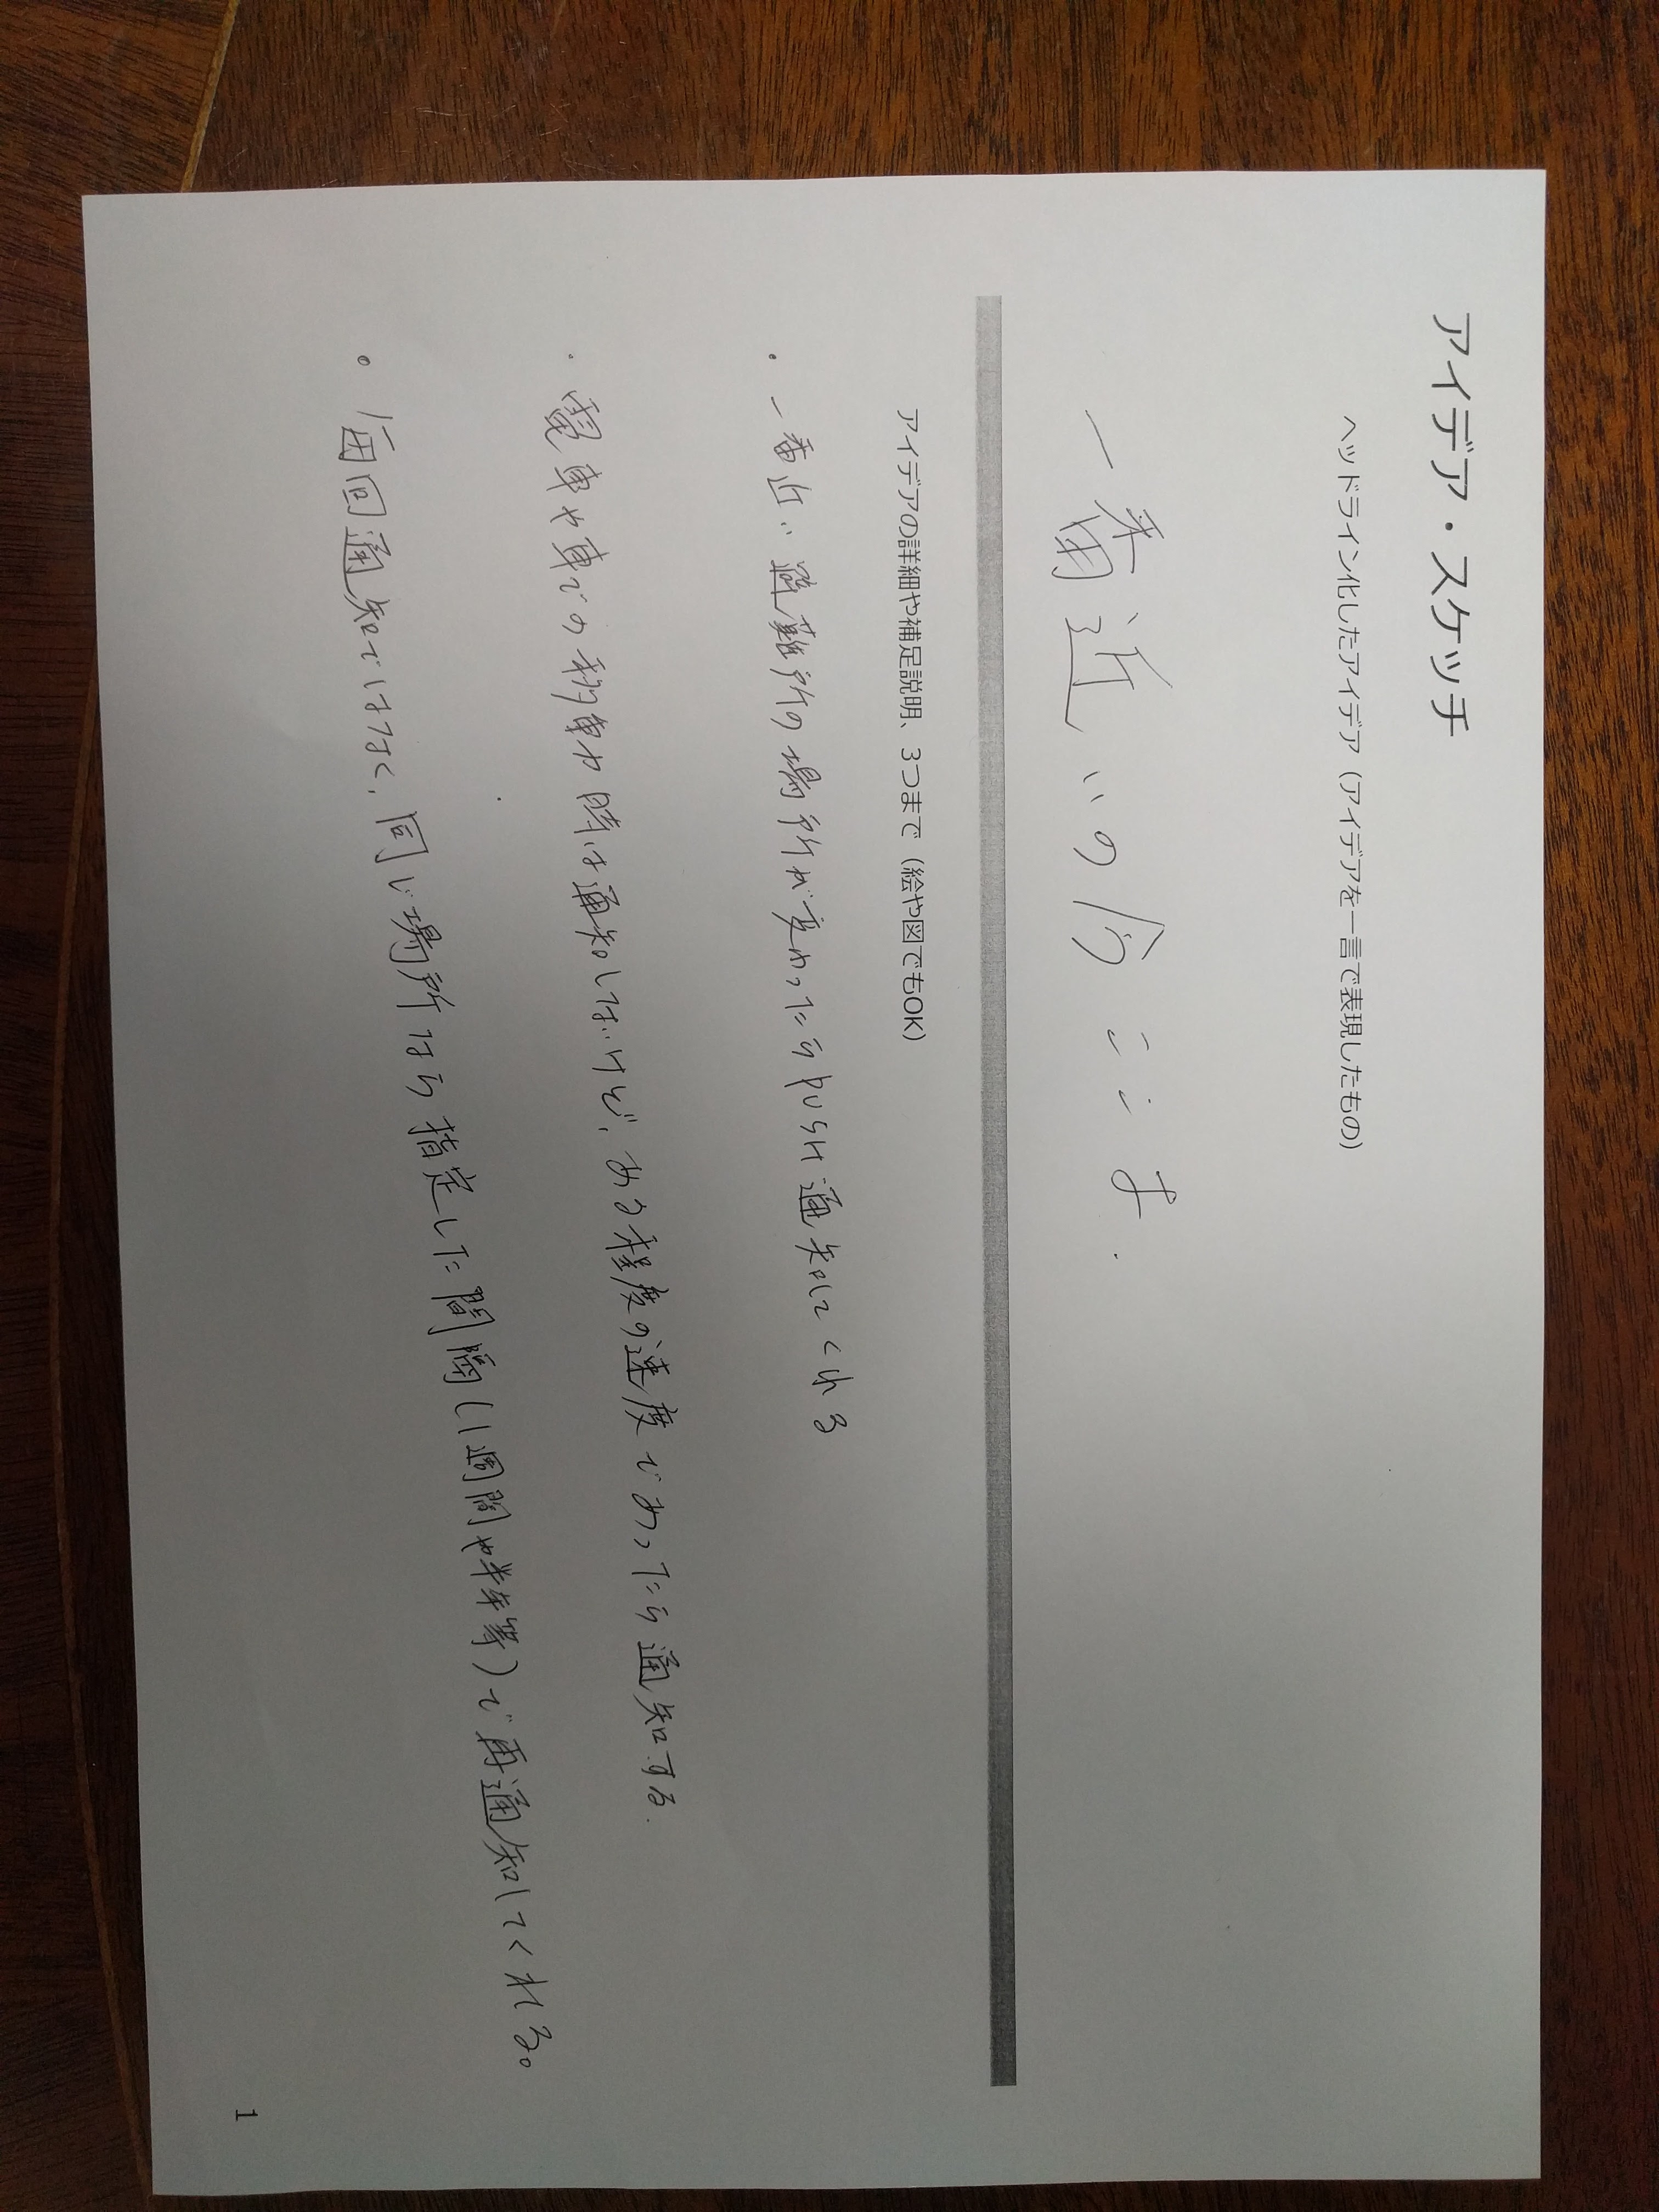 アイデア・スケッチ
ヘッドライン化したアイデア（アイデアを一言で表現したもの）
一番近いの今ここよ.
アイデアの詳細や補足説明、3つまで（絵や図でもOK）
・一番近い避難所の場所が変わったらpush通知してくれる
・電車や車での移動時は通知しないけど、ある程度の速度であったら通知する.
・毎回通知ではなく、同じ場所なら指定した間隔(1週間や半年等)で再通知してくれる。
1